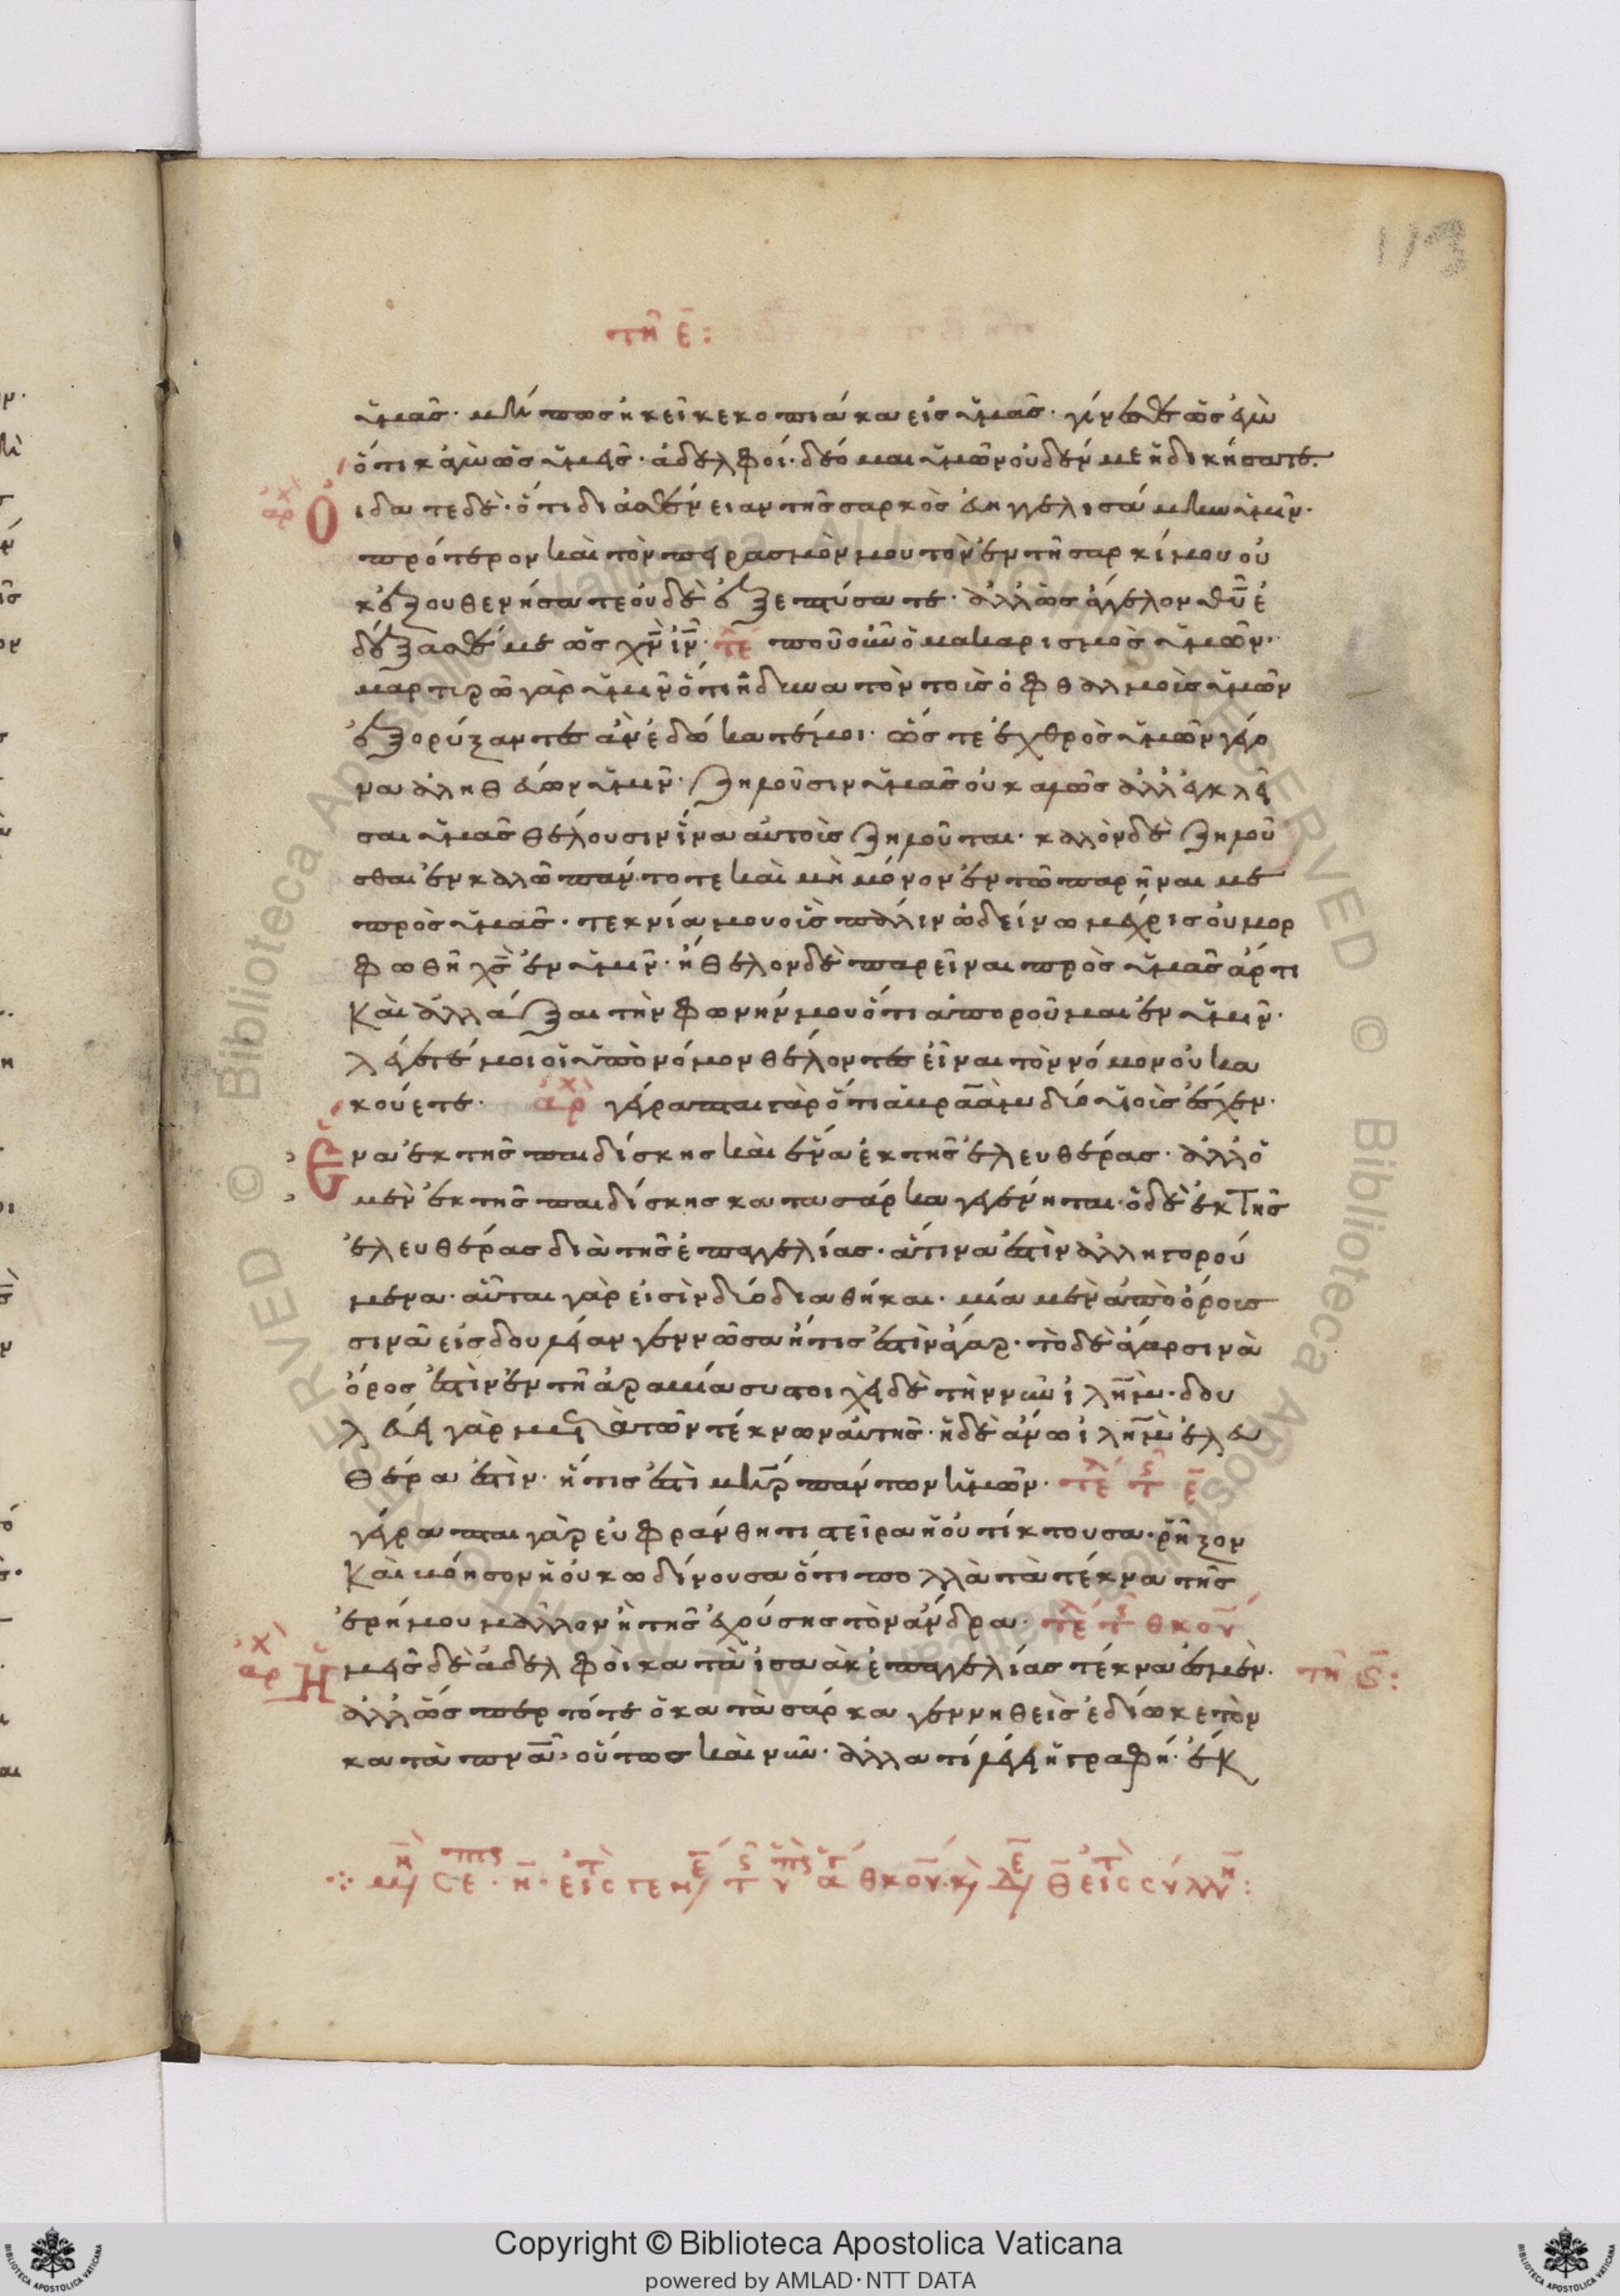 113
τῆ ε̄:
ὑμᾶς· μήπως ἠκεῖ κεκοπίακα εἰς ὑμᾶς· γίνεσθε ὡς ἐγὼ
ὅτι κἀγὼ ὡς ὑμεῖς· ἀδελφοί· δέομαι ὑμῶν οὐδέν με ἠδικήσατε.
Οἴδατε δὲ· ὅτι δι ἀσθένειαν τῆς σαρκὸς εὐηγγελισάμην ὑμῖν·
πρότερον καὶ τὸν πειρασμὸν μου τὸν ἐν τῆ σαρκί μου οὐ
κ ἐξουθενήσατε οὐδὲ ἐξεπτύσατε· ἀλλ ὡς ἄγγελον θῦ ἐ
δέξασθέ με ὡς χν̄ ιν̄· τε ποῦ οὖν ὁ μακαρισμὸς ὑμῶν·
μαρτυρῶ γὰρ ὑμῖν ὅτι ἠδύνατον τοὶς ὀφθαλμοὶς ὑμῶν
ἐξορύξαντες ἂν ἐδώκατέ μοι· ὥστε ἐχθρὸς ὑμῶν γέγο
να ἀληθεύων ὑμῖν· ζηλοῦσιν ὑμᾶς οὐ καλῶς ἀλλ ἐκκλεῖ
σαι ὑμᾶς θέλουσιν ἵνα αὐτοὶς ζηλοῦται· καλὸν δὲ ζηλοῦ
σθαι ἐν καλῶ πάντοτε καὶ μὴ μόνον ἐν τῶ παρῆναι με
πρὸς ὑμᾶς· τεκνία μου οἷς πάλιν ὠδείνω μέχρις οὗ μορ
φωθῆ χς̄ ἐν ὑμῖν· ἤθελον δὲ παρεῖναι πρὸς ὑμᾶς ἄρτι
καὶ ἀλλάξαι τὴν φωνήν μου ὅτι ἀποροῦμαι ἐν ὑμῖν·
λέγετέ μοι οἱ ὑπὸ νόμον θέλοντες εἶναι τὸν νόμον οὐκ ἀ
κούετε· ἀρχ γέγραπται γὰρ ὅτι ἀβραὰμ δύο υἱοὺς ἔσχεν·
Ἕνα ἐκ τῆς παιδίσκης καὶ ἕνα ἐκ τῆς ἐλευθέρας· ἀλλ ὁ
μὲν ἐκ τῆς παιδίσκης κατα σάρκα γεγένηται· ὁ δὲ ἐκ τῆς
ἐλευθέρας διὰ τῆς ἐπαγγελίας· ἅτινα ἐστὶν ἀλληγορού
μενα· αὗται γὰρ εἰσὶν δύο διαθήκαι· μία μὲν ἀπὸ ὄρους
σινᾶ εἰς δουλείαν γεννῶσα ἥτις ἐστὶν ἄγαρ· τὸ δὲ ἄγαρ σινὰ
ὄρος ἐστὶν ἐν τῆ ἀραβία συστοιχεῖ δὲ τὴν νῦν ἰλῆμ· δου
λεύει γὰρ μετὰ τῶν τέκνων αὐτῆς· ἡ δὲ ἄνω ἰλῆμ ἐλευ
θέρα ἐστὶν· ἥτις ἐστὶ μηρ πάντων ἡμῶν·
γέγραπται γὰρ εὐφράνθητι στεῖρα ἡ οὐ τίκτουσα· ῥῆξον
καὶ βόησον ἡ οὐκ ὠδίνουσα ὅτι πολλὰ τὰ τέκνα τῆς
ἐρήμου μᾶλλον ἢ τῆς ἐχούσης τὸν ἄνδρα· θκου
Ἡμεῖς δὲ ἀδελφοὶ κατὰ ἰσαὰκ ἐπαγγελίας τέκνα ἐσμέν·
ἀλλ ὥσπερ τότε ὁ κατὰ σάρκα γέννηθεὶς ἐδίωκε τὸν
κατὰ πνᾶ· οὕτως καὶ νῦν· ἀλλα τί λέγει ἡ γραφή· ἔκ